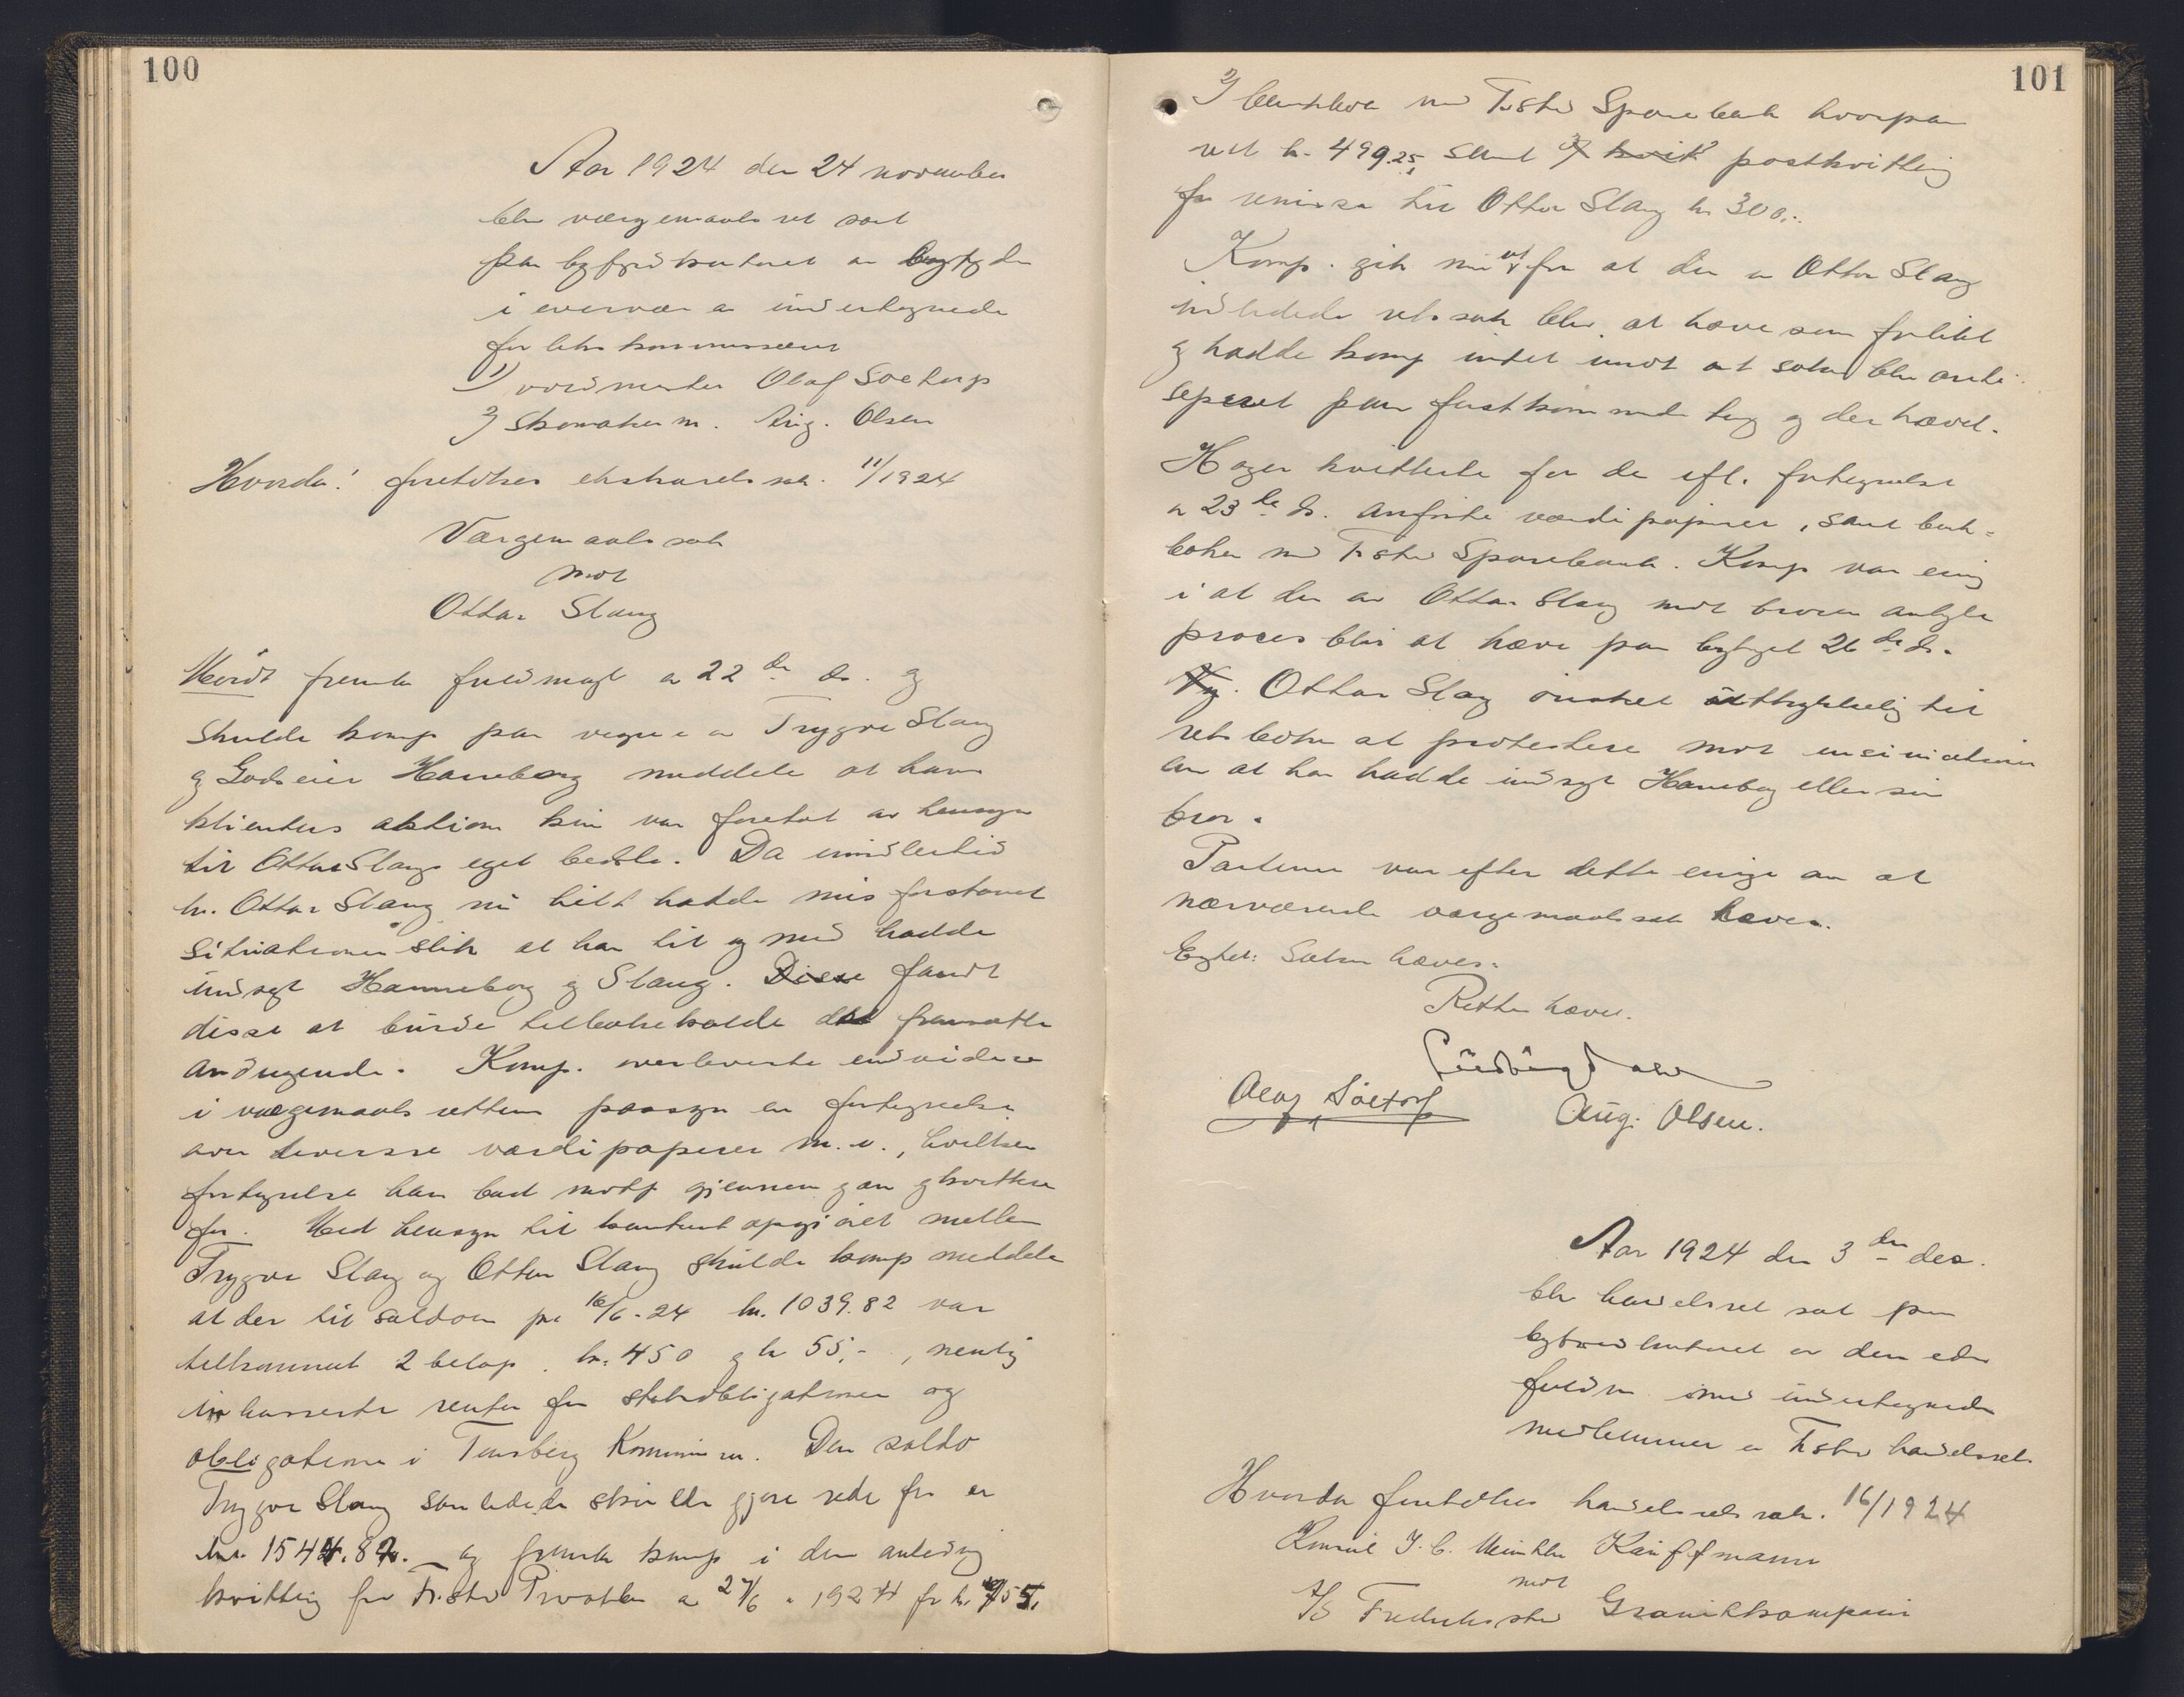 100
Aar 1924 den 24 november
blev værgemaals ret sat
paa byfogd kontoret av byfogden
i overvær av undertegnede
1) vordmester Olaf Soetorp
2) Skomakerm. Aug. Olsen
Hvorda: foretokes ekstraretssak. 11/1924
Værgemaals sak
mot
Ottar Stang
Møidt fremla fuldmagt av 22de ds. og
skulde komp paa vegne av Trygve Stang
og Godseier Hanneborg meddele at hans
klienters aktion kun var foretat av hensyn
til Ottar Stangs eget bedste. Da imidlertid
hr. Ottar Stang nu helt hadde misforstaaet
situationen slik at han til og med hadde
undsagt Hanneborg og Stang. Disse fandt
disse at burde tilbakekalde det fremsatte
andragende. Komp. overleverte endvidere
i værgemaals rettens paasyn en fortegnelse
over diverse værdipapirer m. v., hvilken
fortegnelse han bad motp gjennemgaa og kvittere
for. Med hensyn til kontantopgjøret mellem
Trygve Stang og Ottar Stang skulde komp meddele
at der til saldoen pr 16/6-24 kr. 1039.82 var
tilkommet 2 beløp. kr. 450 og kr 55,-, nemlig
inkasserte renter for statsobligationer og
obligationer i Tønsberg Kommune. Den saldo
Trygve Stang saaledes skulde gjøre rede for er
kr. 1544.82. og fremla komp i den anledning
kvittering fra Fr.stad Privatbk av 27/6 1924 for kr. 755,
101
2) bankbok med Fr.stad Sparebank hvorpaa
rest kr. 499.25, samt 3) kvit postkvittering
for remissa til Ottar Stang kr 300,-.
Komp. gik nu ut fra at den av Ottar Stang
indledede retssak blev at hæve som forlikt
og hadde komp intet imot at saken blev anti-
siperet paa førstkommende ting og der hævet.
Hagen kvitterte for de ifl. fortegnelse
av 23de ds. anførte værdipapirer, samt bank-
boken med Fr.stad Sparebank. Komp var enig
i at den av Ottar Stang mot broren anlagte
proces blir at hæve paa bytinget 26de ds.
Ottar Stang ønsket uttrykkelig til
retsboken at protestere mot insinuationen
om at han hadde undsagt Hanneborg eller sin
bror.
Parterne var efter dette enige om at
nærværende værgemaalssak hæves.
Eragtet: Saken hæves.
Retten hævet.
Olaf Søetorp
Aug. Olsen.
Aar 1924 den 3den des.
blev handelsret sat paa
byfogdkontoret av den edsv.
fuldm. med undertegnede
medlemmer av Fr.stad handelsret.
Hvorda foretokes handelsretssak. 16/1924
Konsul J. C. Kauffmann
mot
A/S Fredriksstad Granitkompani